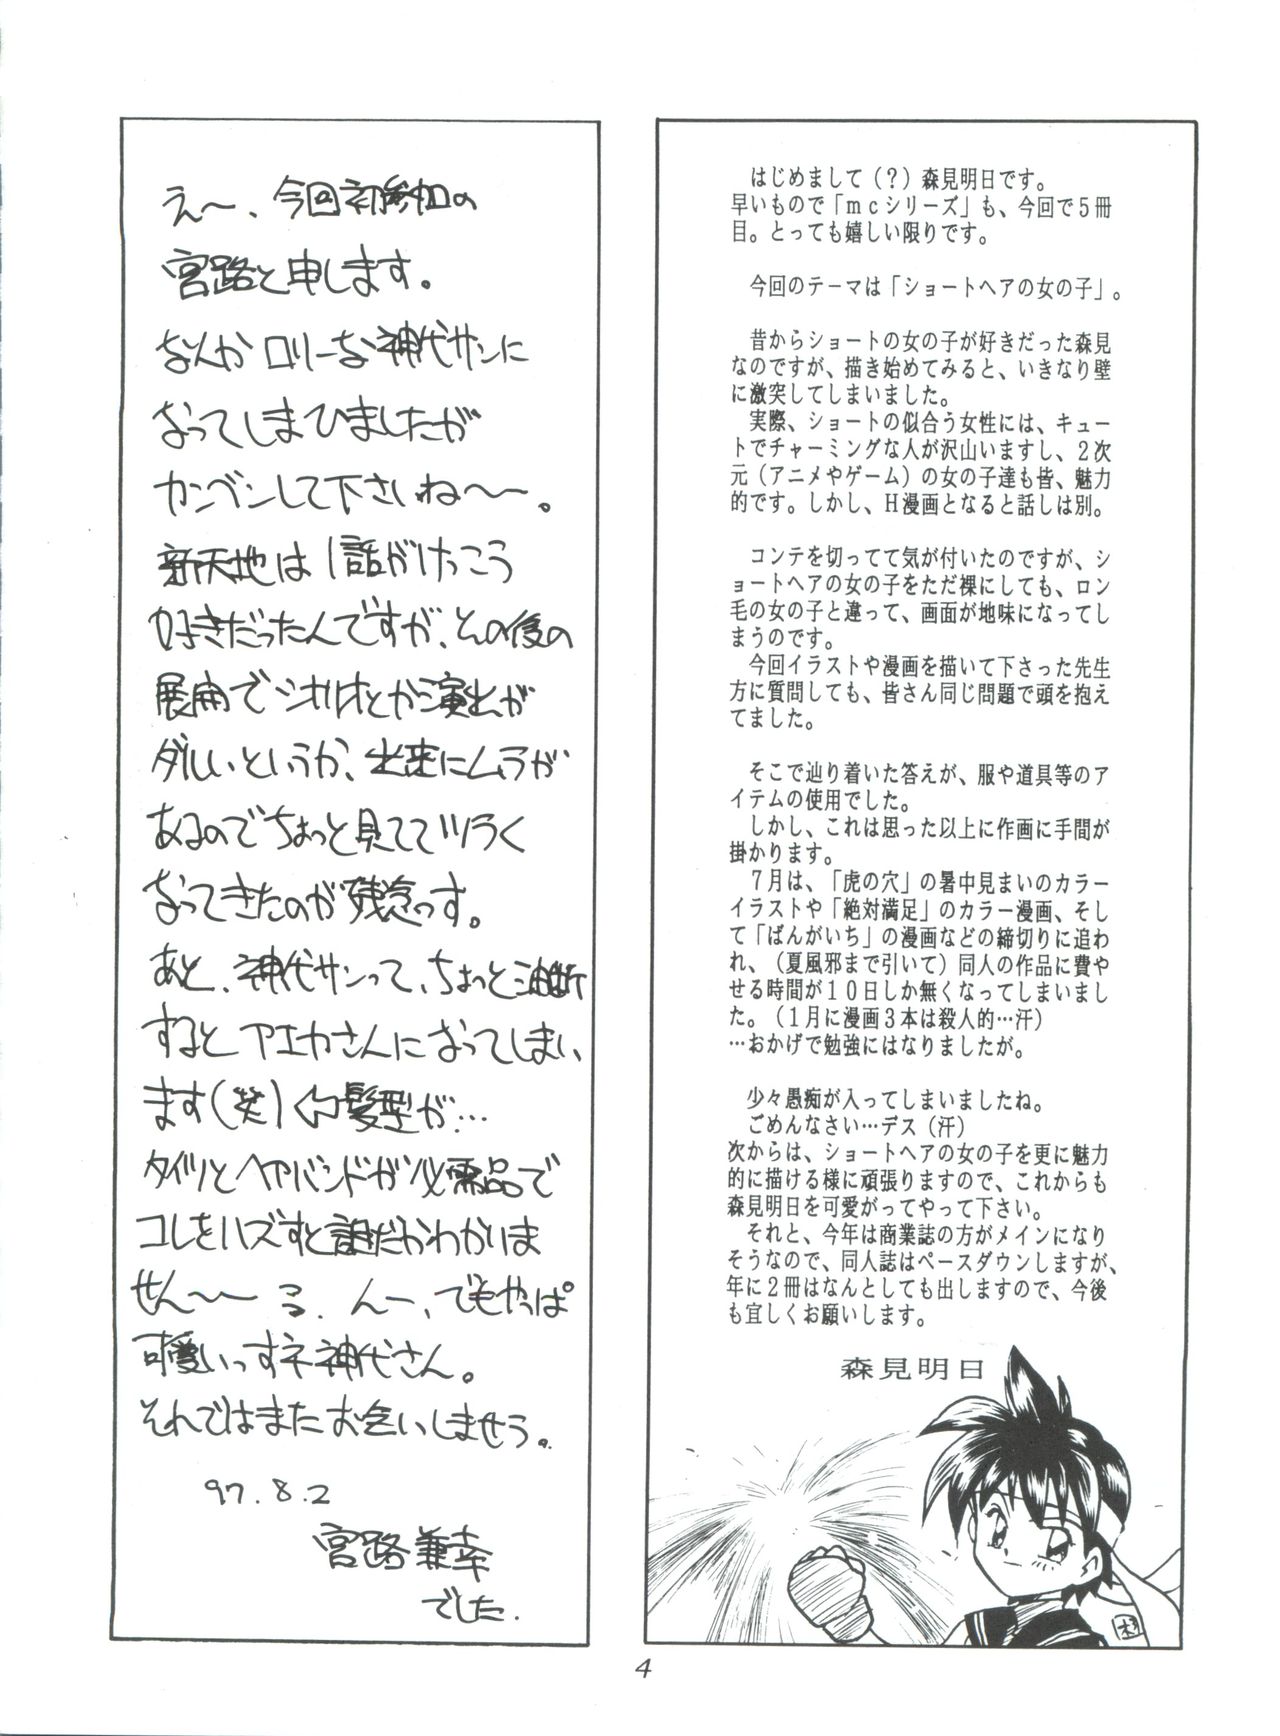 はじめまして（？）森見明日です。
早いもので「ｍｃシリーズ」も、今回で５冊
目。とっても嬉しい限りです。
今回のテーマは「ショートヘアの女の子」。
昔からショートの女の子が好きだった森見
なのですが、描き始めてみると、いきなり壁
に激突してしまいました。
実際、ショートの似合う女性には、キュー
トでチャーミングな人が沢山いますし、２次
元（アニメやゲーム）の女の子達も皆、魅力
的です。しかし、Ｈ漫画となると話しは別。
コンテを切ってて気が付いたのですが、シ
ョートヘアの女の子をただ裸にしても、ロン
毛の女の子と違って、画面が地味になってし
まうのです。
今回イラストや漫画を描いて下さった先生
方に質問しても、皆さん同じ問題で頭を抱え
てました。
そこで辿り着いた答えが、服や道具等のア
イテムの使用でした。
しかし、これは思った以上に作画に手間が
掛かります。
７月は、「虎の穴」の暑中見まいのカラー
イラストや「絶対満足」のカラー漫画、そし
て「ばんがいち」の漫画などの締切りに追わ
れ、（夏風邪まで引いて）同人の作品に費や
せる時間が１０日しか無くなってしまいまし
た。（１月に漫画３本は殺人的…汗）
…おかげで勉強にはなりましたが。
少々愚痴が入ってしまいましたね。
ごめんなさい…デス（汗）
次からは、ショートヘアの女の子を更に魅力
的に描ける様に頑張りますので、これからも
森見明日を可愛がってやって下さい。
それと、今年は商業誌の方がメインになり
そうなので、同人誌はペースダウンしますが、
年に２冊はなんとしても出しますので、今後
も宜しくお願いします。
森見明日
え〜、今回初参加の
宮路と申します。
なんかロリーな神代サンに
なってしまひましたが
カンベンして下さいね〜〜。
新天地は1話がけっこう
好きだったんですが、その後の
展開でシオリとか演出が
ダルいというか、出来にムラが
あるのでちょっと見ててツラく
なってきたのが残念っす。
あと、神代サンって、ちょっと油断
するとアエカさんになってしまい
ます(笑)⇦髪型が…
タイツとヘアバンドが必需品で
コレをハズすと誰だかわかりま
せん〜〜 んー、でもやっぱ
可愛いっすネ神代さん。
それではまたお会いしませう。
97.8.2
宮路兼幸
でした.
4